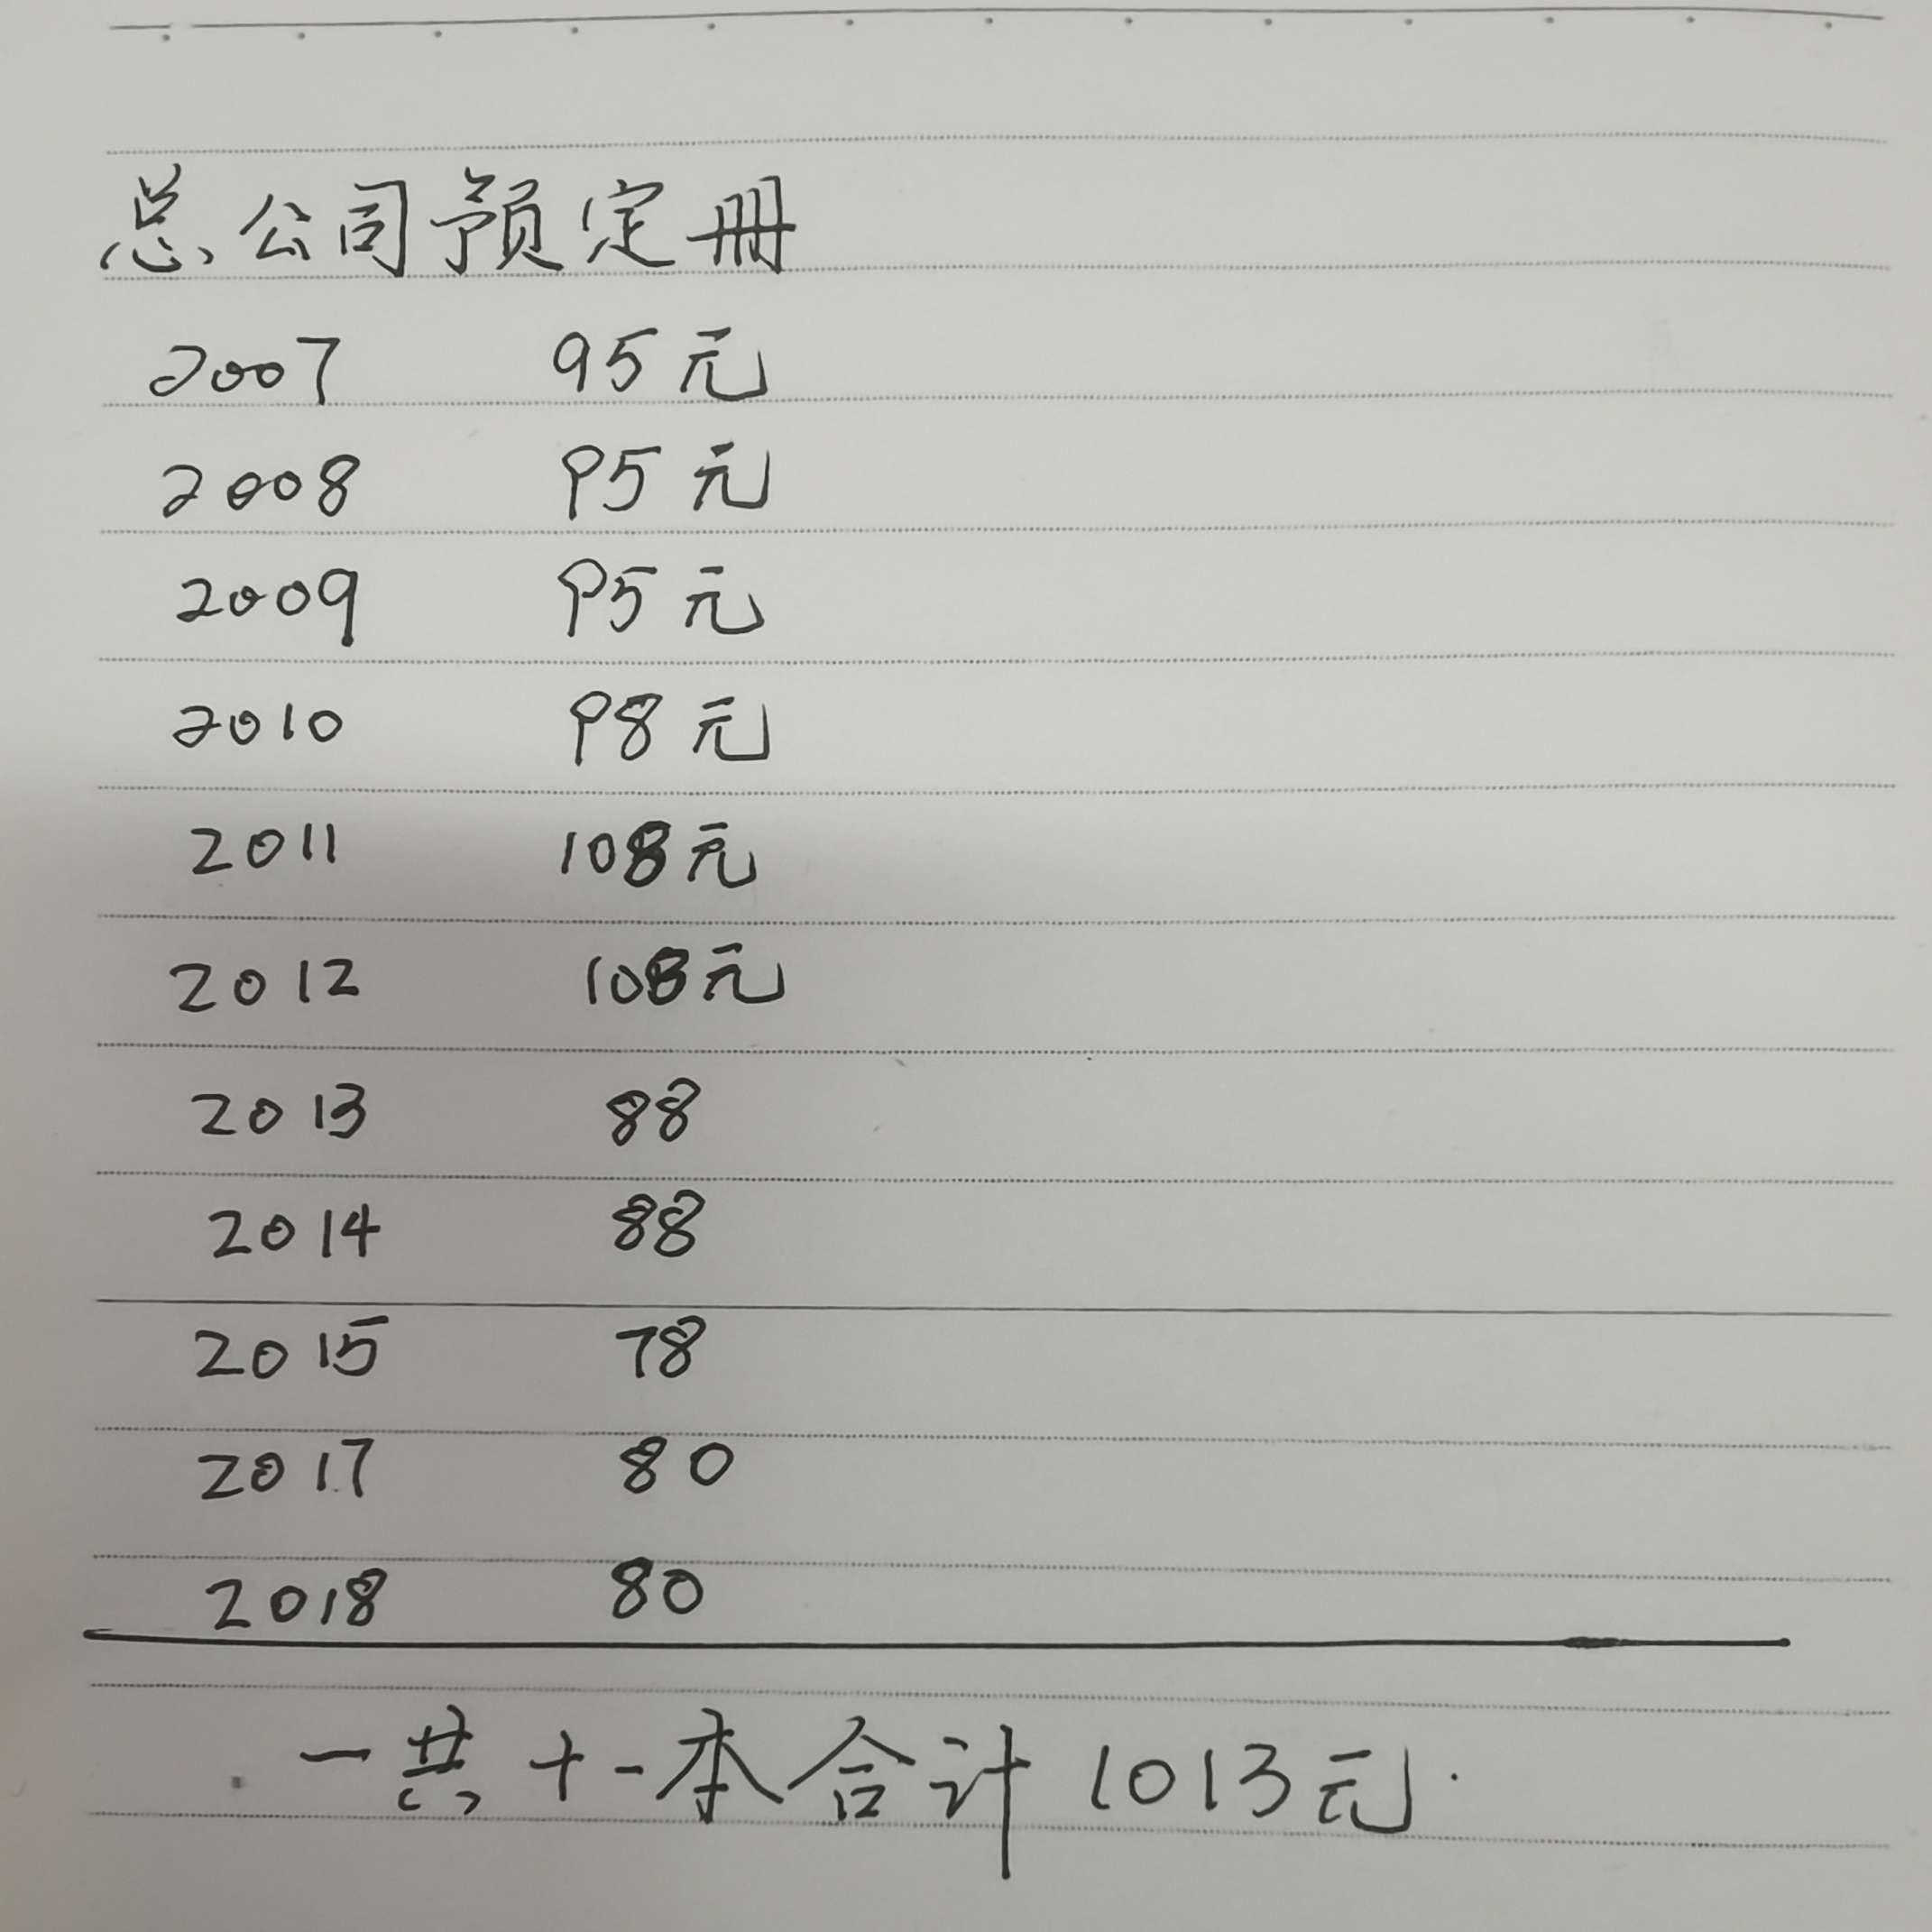 总公司预定册
2007 95元
2008 95元
2009 95元
2010 98元
2011 108元
2012 108元
2013 88
2014 88
2015 78
2017 80
2018 80
一共十一本合计1013元.